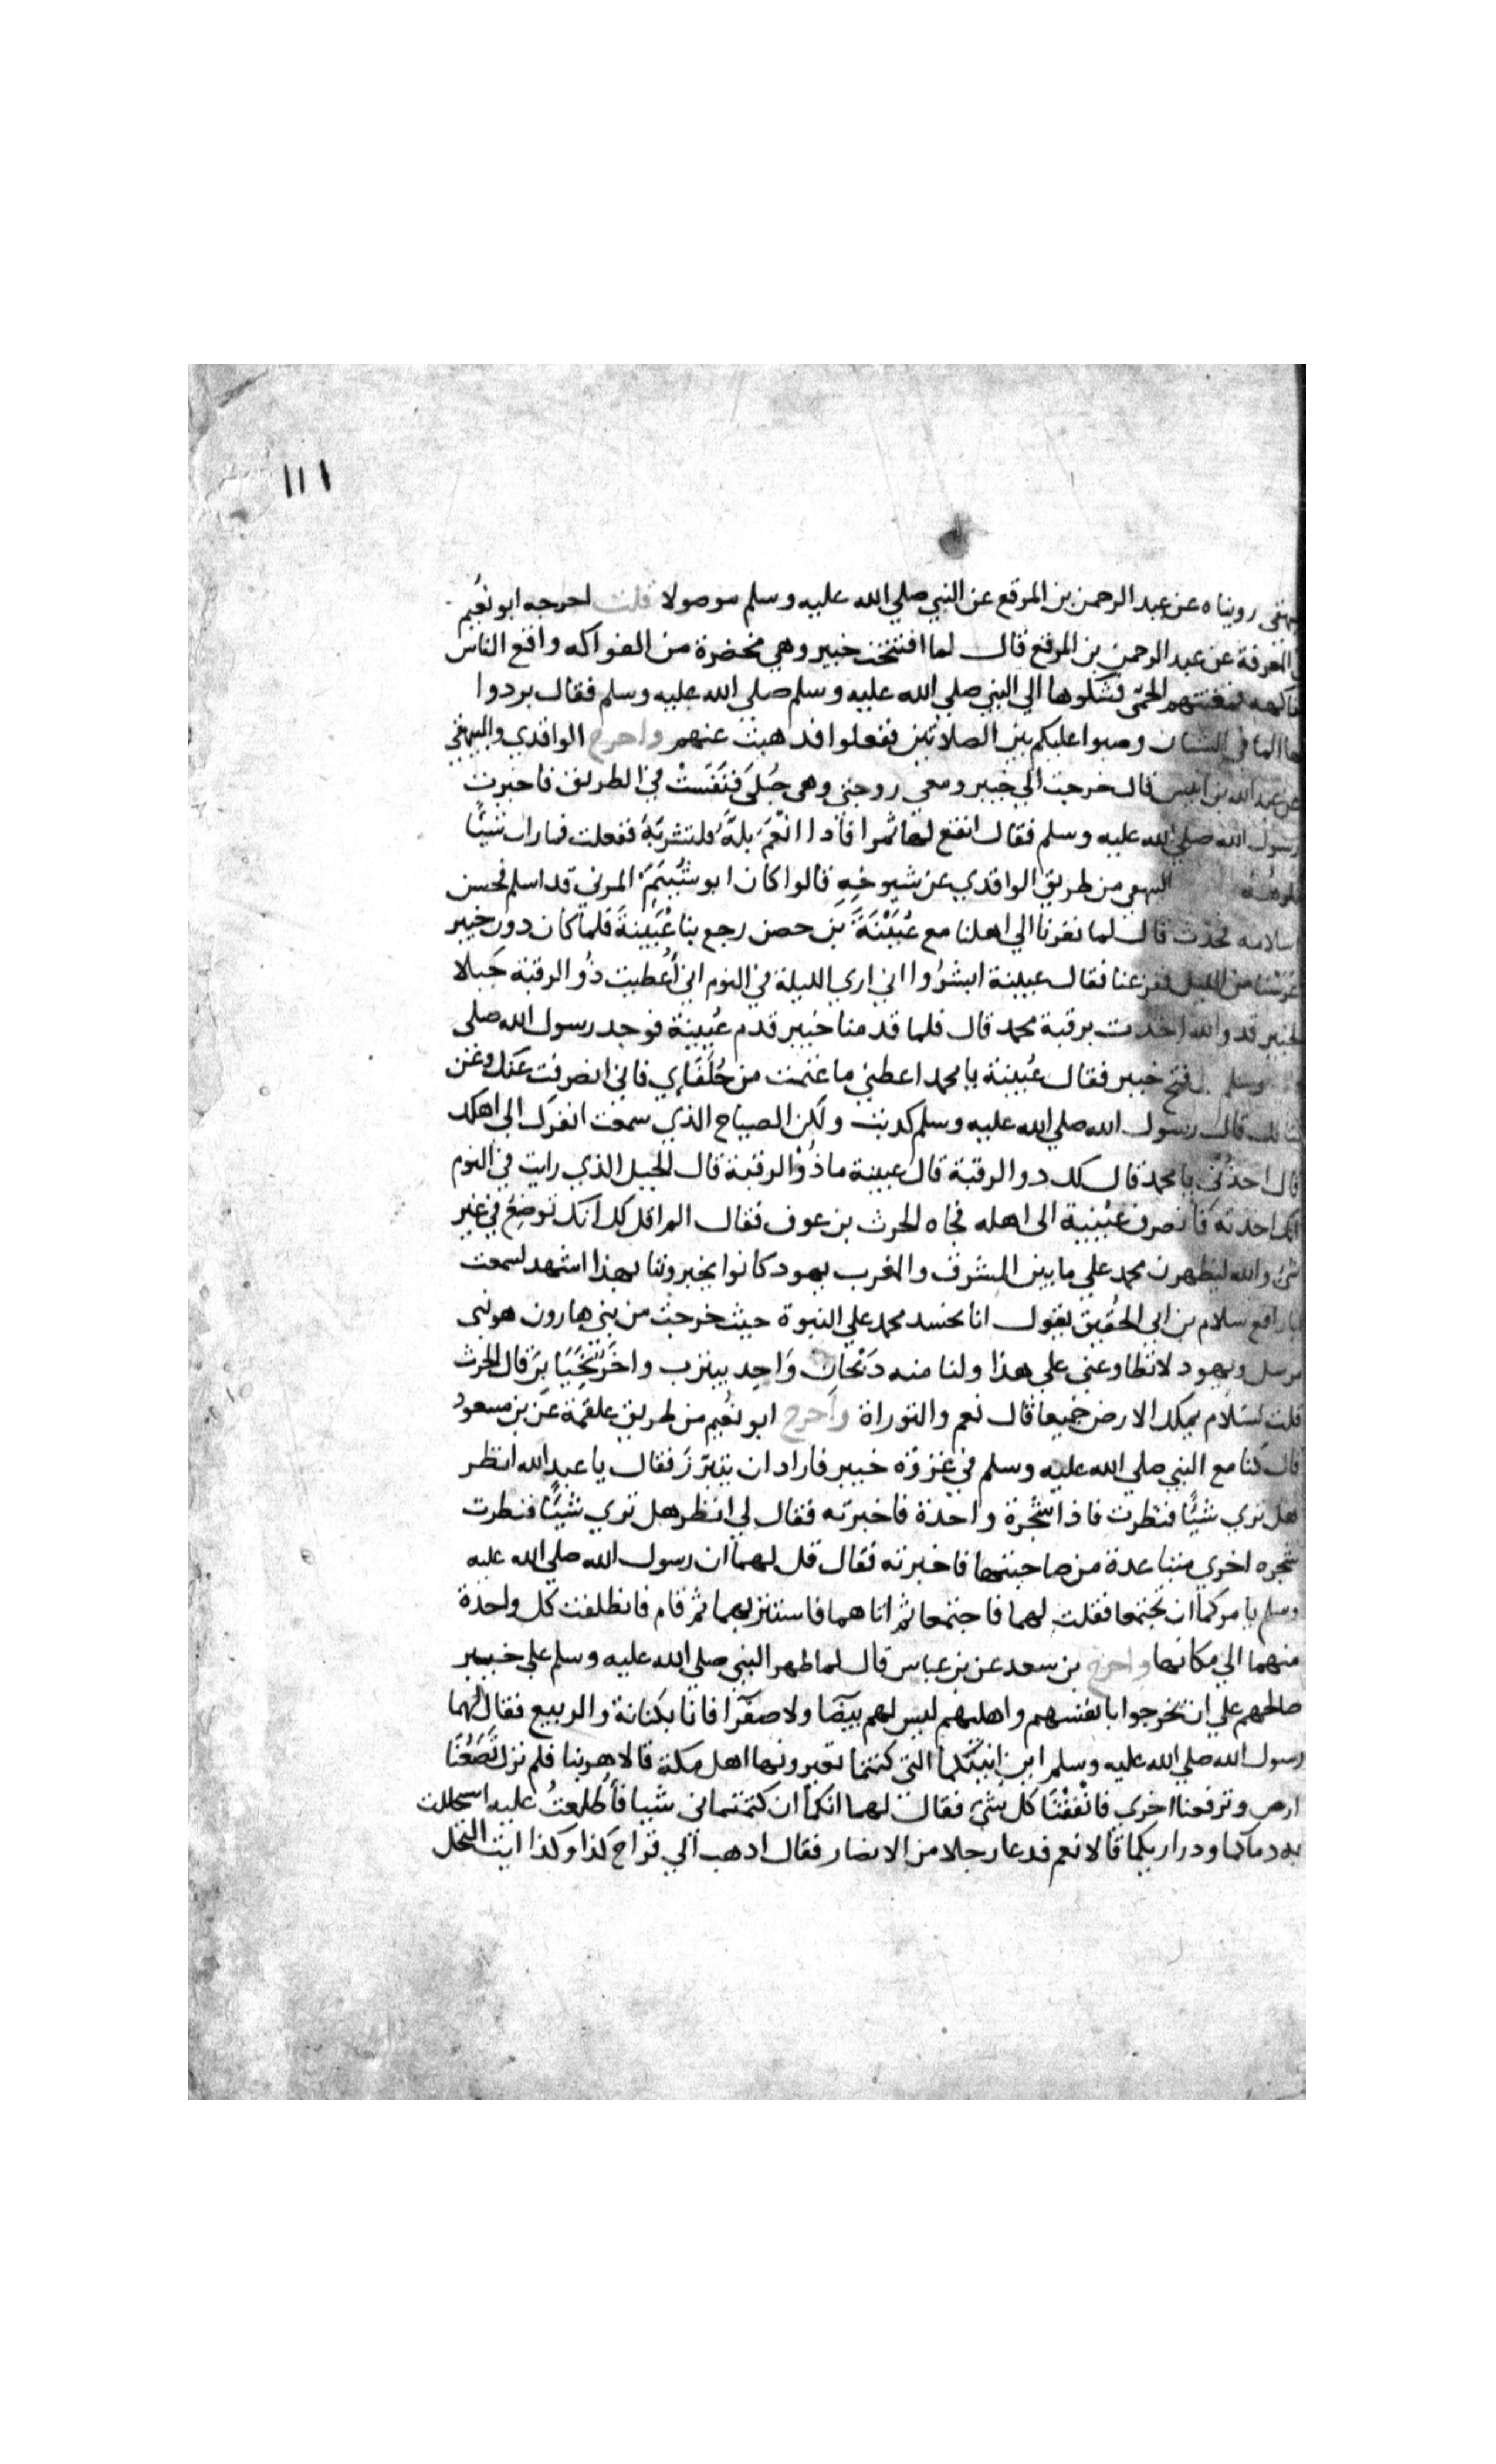 ١١١
رويناه عن عبد الرحمن بن المرقع عن النبي صلي الله عليه وسلم موصولا قلت اخرجه ابو نُعيم
المعرفة عن عبد الرحمن بن المرقع قال لما افتتحت خيبر وهي مخضرة من الفواكه واقع الناس
الحمّى فشكوها الي النبي صلي الله عليه وسلم صلي الله عليه وسلم فقال بردوا
الما في الشنان وصبوا عليكم بين الصلاتين ففعلوا فذهبت عنهم واخرج الواقدي والبيهقي
عن عبد الله بن انيس قال خرجت الي خيبر ومعي زوجتي وهي حُبلَى فنَفَسَتْ في الطريق فاخبرت
رسول الله صلي الله عليه وسلم فقال انقع لها تمرا فاذا انْعَمَ بلَّه فلتشربَهُ ففعلت فما رات شيًا
البيهقي من طريق الواقدي عن شيوخِهِ قالوا كان ابو شُيَيمِ المزني قد اسلم فحسن
اسلامه فحدث قال لما نفرنا الي اهلنا مع عُيَيْنَةَ بن حصن رجع بنا عُيَينةَ فلما كان دون خيبر
عرسنا من الليل ففزعنا فقال عيينة ابشروا اني اري الليلة في النوم اني أُعطيت ذُو الرقبة جَبلا
بخيبر قد والله اخذت برقبة محمد قال فلما قدمنا خيبر قدم عُيينة فوجد رسول الله صلى
وسلم فتح خيبر فقال عُيينة يا محمد اعطني ما غنمت من حُلَفَاي فاني انصرفت عنك وعن
قال رسول الله صلي الله عليه وسلم كدبت ولكن الصياح الذي سمعت انفرك الي اهلك
قال احذني يا محمد قال لك دو الرقبة قال عيينة ما ذُوْ الرقبة قال الجبل الذي رايت في النوم
انك اخذته فانصرف عُيينية الى اهله فجاه الحرث بن عوف فقال الم اقل لك انك توضِعُ في غير
شئ والله ليظهرن محمد علي ما بين المشرق والمغرب يهود كانوا يخبروننا بهذا اشهد لسمعت
ابا رافع سلام بن ابي الحُقيق يقول انا نحسد محمد علي النبوة حيث خرجت من بني هارون هو نبي
مرسل ويهود لا تطاوعني علي هذا ولنا منه ذبْحانِ وَاحِد بيثرب واخَر بخَيبَرَ قال الحرث
قلت لسَلام يملك الارض جميعا قال نعم والتوراة واخرج ابو نُعيم من طريق علقمة عن بن مسعودُ
قال كنا مع النبي صلي الله عليه وسلم في غزوة خيبر فاراد ان يتبرّزَ فقال يا عبد الله انظر
هل تري شيًا فنظرت فاذا شجرة واحدة فاخبرته فقال لي انظر هل تري شيًا فنظرت
شجره اخري متباعدة من صاحبتها فاخبرته فقال قل لهما ان رسول الله صلي الله عليه
وسلم يامركما ان تجتمعا فقلت لهما فاجتمعا ثم اتاهما فاستتر بهما ثم قام فانطلقت كل واحدة
منهما الي مكانها واخرج بن سعد عن بن عباس قال لما ظهر النبي صلي الله عليه وسلم علي خيبر
صالحهم علي ان يخرجوا بانفسهم واهليهم ليس لهم بيضَا ولا صفرَا فاتا بكنانة والربيع فقال لهما
رسول الله صلي الله عليه وسلم اين انيتكما التي كنتما تعيرونها اهل مكة قالا هربنا فلم نزل تَضَعُنَا
ارض وترفعنا اخري فانْفَقْنَا كل شئ فقال لهما انكما ان كتمتماني شيا فأُطلِعتُ عليه استحللت
به دماكما ودراريكما قالا نعم فدعا رجلا من الانصار فقال اذهب الي قراح كذا وكذا ايت النخل